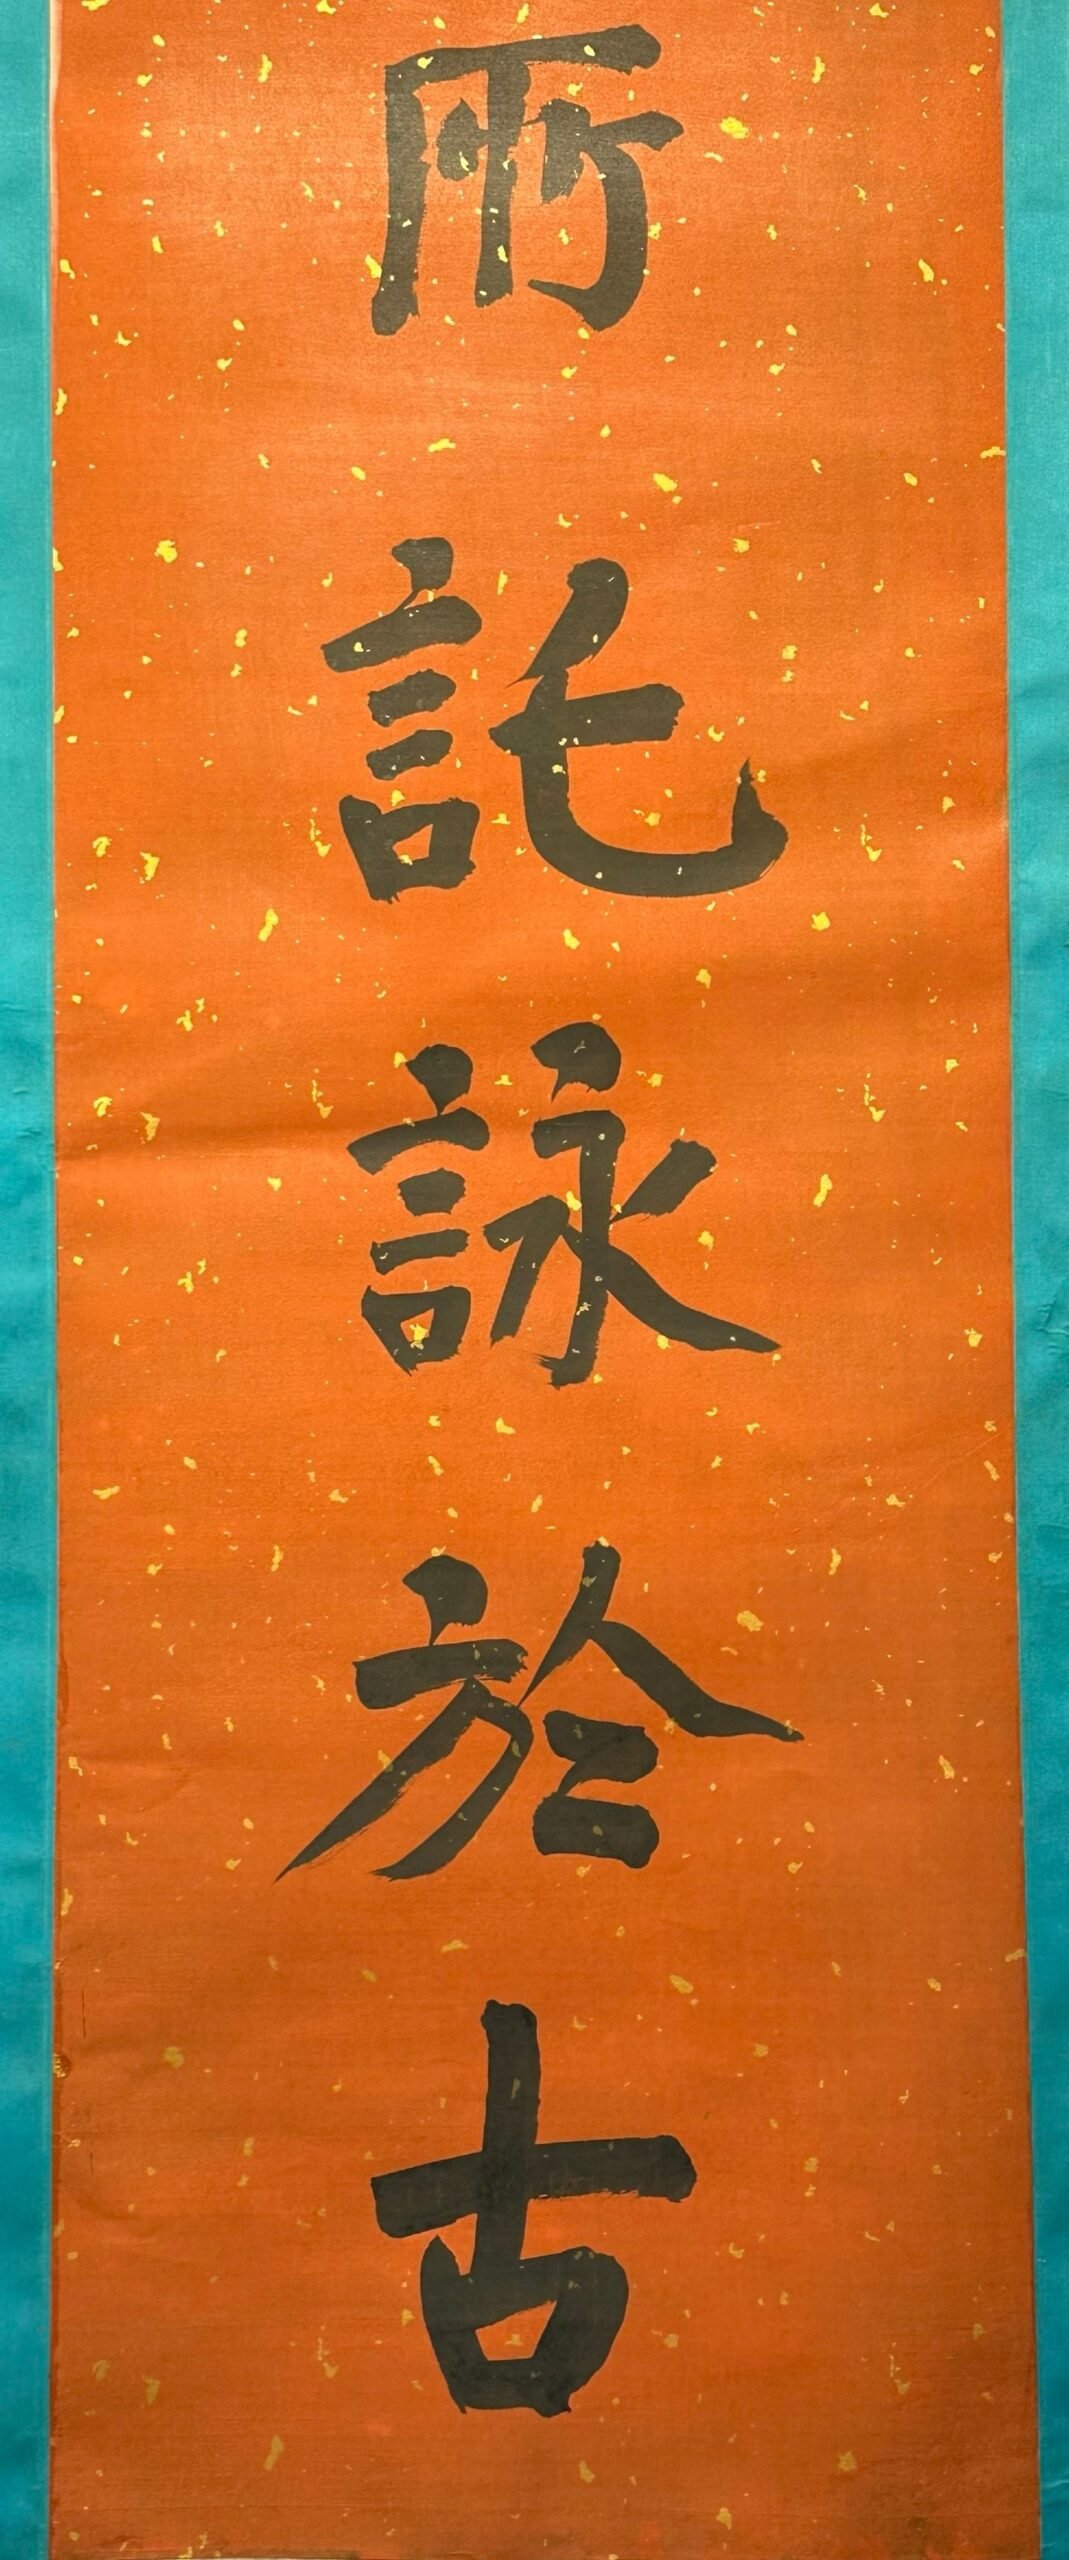 所託詠於古